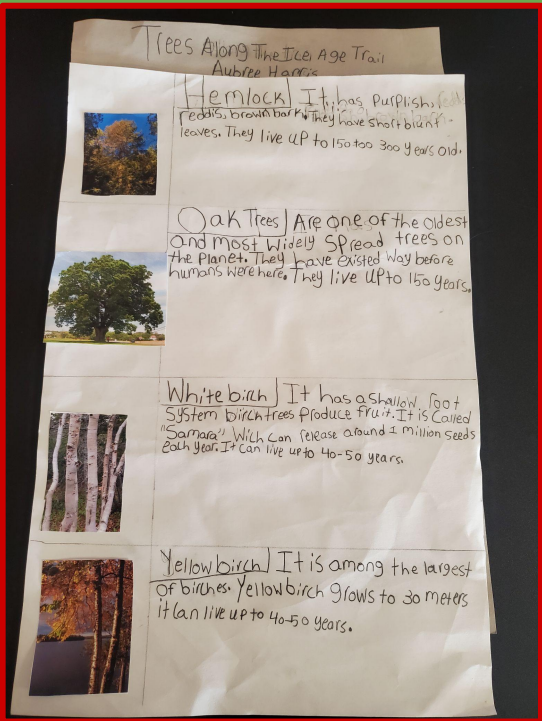 Trees Along The Ice Age Trail
Aubree Harris
Hemlock It, has Purplish,
reddis, brown bark. They have short blunt
leaves. They live up to 150 too 300 years old.
Oak Trees Are one of the oldest
and most widely spread trees on
the planet. They have existed way before
humans were here. They live up to 150 years.
White birch It has a shallow root
System birch trees produce fruit. It is called
"Samara" Wich can release around 1 million seeds
each year. It can live up to 40-50 years.
Yellow birch It is among the largest
of birches. Yellow birch grows to 30 meters
it can live up to 40-50 years.